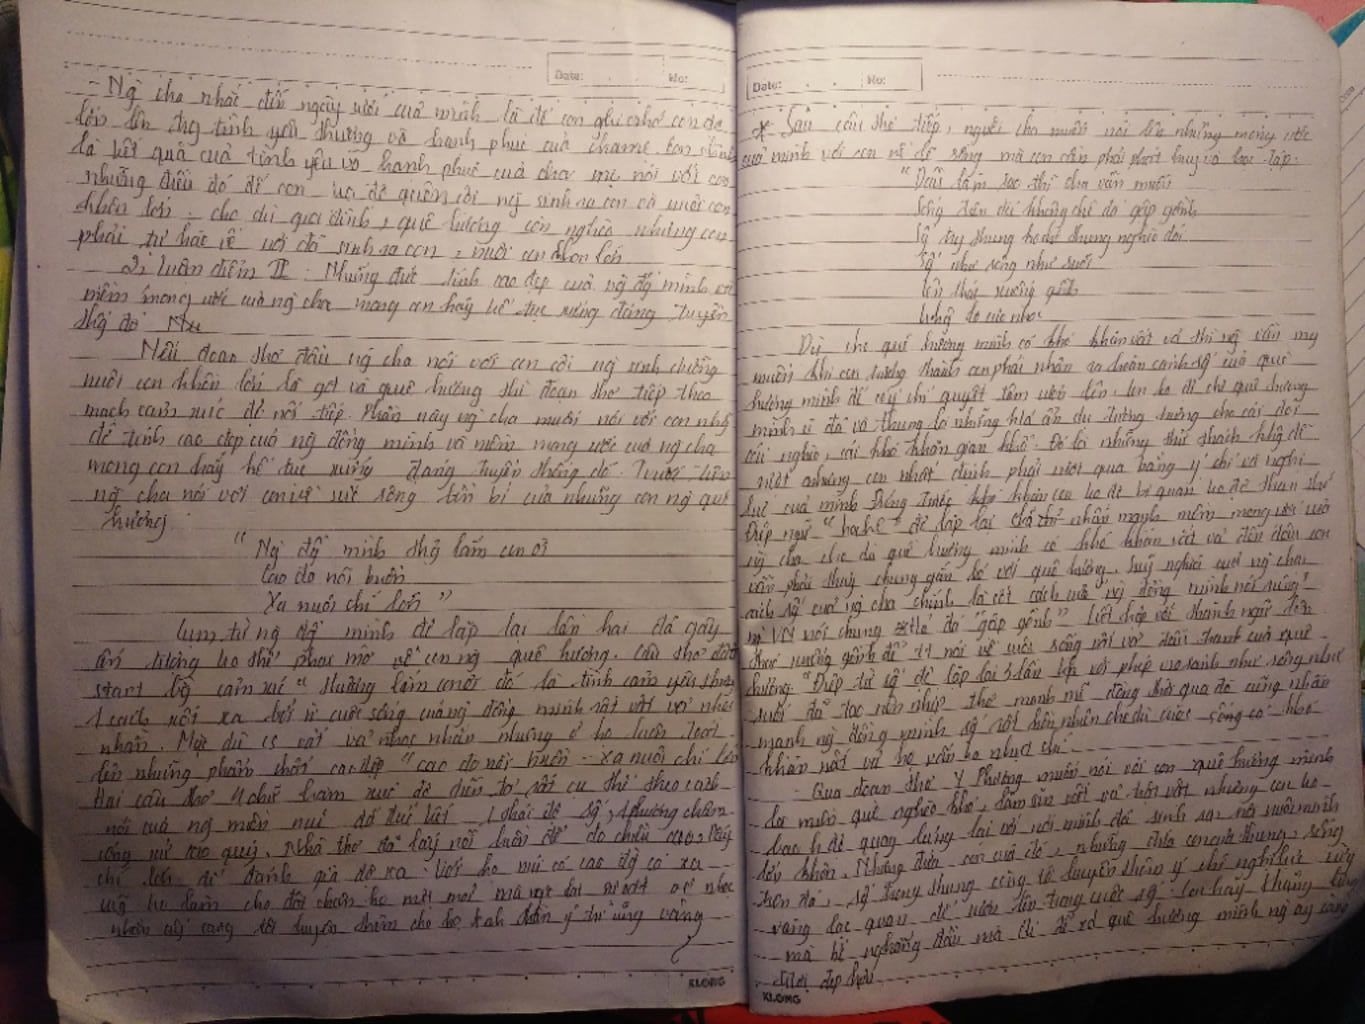 Date: . . No:
- Ng cha nhắc đến ngày cưới của mình là để con ghi nhớ con đã
lớn lên tình yêu thương và hạnh phúc của cha mẹ. Con
là kết quả của tình yêu và hạnh phúc của cha mẹ nói với con
những điều đó để con cội ng sinh ra con và nuôi con
khôn lớn. cho dù gia đình, quê hương còn nghèo nhưng con
phải tự hào về nơi đã sinh ra con, nuôi con khôn lớn
2. luận điểm II: Những đức tính cao đẹp của ng đg mình và
niềm mong ước của ng cha mong con hãy kế tục xứng đáng truyền
thg đó
Nếu đoạn thơ đầu ng cha nói với con cội ng sinh dưỡng
nuôi con khôn lớn là gđ và quê hương thì đoạn thơ tiếp theo
mạch cảm xúc để nối tiếp. Phần này ng cha muốn nói với con
đức tính cao đẹp của ng đồng mình và niềm mong ước của ng cha
mong con hãy kế tục xứng đáng truyền thống đó. Trước tiên
ng cha nói với con về sức sống bền bỉ của những con ng quê
hương
" Ng đg mình thg lắm con ơi
Cao đo nỗi buồn
Xa nuôi chí lớn "
Cụm từ ng đg mình đc lặp lại lần hai đã gây
ấn tượng về con ng quê hương. Câu thơ
bộc cảm xúc " thương lắm con ơi đó là tình cảm yêu thương
xót xa bởi vì cuộc sống của ng đồng mình rất vất vả
nhằn. Mặc dù cs vất vả nhọc nhằn nhưng ở họ luôn toát
lên những phẩm chất cao đẹp " cao đo nỗi buồn - xa nuôi chí lớn
Hai câu thơ 4 chữ hàm xúc đc diễn tả rất cụ thể theo cách
nói của ng miền núi thái độ sg, phương châm
sống cao quý. Nhà thơ đã lấy nỗi buồn để đo chiều cao, lấy
chí lớn để đánh giá độ xa. Với họ núi có cao đg có xa
cũng ko làm cho đôi chân họ mệt mỏi mà ngc lại nhọc
nhằn càng tôi luyện thêm cho họ ý vững vàng
KLONG
Date: . . No:
* Sáu câu thơ tiếp, người cha muốn nói lên những mong ước
của mình với con về lẽ sống mà con cần phải phát huy và học tập.
" Dẫu làm sao thì cha vẫn muốn
Sống trên đá không chê đá gập gềnh
Sg trg thung ko chê thung nghèo đói
Sg như sông như suối
Lên thác xuống ghềnh
Không lo cực nhọc
Dù cho quê hương mình có khó khăn vất vả thì ng vẫn mg
muốn khi con trưởng thành con phải nhận ra hoàn cảnh sg của quê
hương mình để có ý chí quyết tâm vươn lên, con ko đc chê quê hương
mình vì đá và thung là những h/a ẩn dụ tượng trưng cho cái đói
cái nghèo, cái khó khăn gian khổ. Đó là những thử thách khg dễ
vượt nhưng con nhất định phải vượt qua bằng ý chí và nghị
lực của mình. Đứng trước khó khăn con ko đc bi quan ko đc than thở
Điệp ngữ " ko chê " đc lặp lại nhấn mạnh niềm mong ước của
ng cha cho dù quê hương mình có khó khăn vất vả đến đâu con
vẫn phải thuỷ chung gắn bó với quê hương. Suy nghĩ của ng cha
cách sg của ng cha chính là cốt cách của ng đồng mình nói riêng
ng VN nói chung. đá "gập gềnh" kết hợp với thành ngữ lên
thác xuống ghềnh để nói về cuộc sống vất vả của quê
hương " Điệp từ sg đc lặp lại 3 lần kết với phép so sánh như sông như
suối đã tạo nên nhịp thơ mạnh mẽ đồng thời qua đó cũng nhấn
mạnh ng đồng mình sg rất hồn nhiên cho dù cuộc sống có khó
khăn vất vả họ vẫn ko nhụt chí
- Qua đoạn thơ Y Phương muốn nói với con quê hương mình
là miền quê nghèo khó, làm ăn vất vả nhưng con ko
bao h đc quay lưng lại với nơi mình đã sinh ra và nuôi mình
lớn khôn. Những đứa con của đá, những đứa con của thung, sống
trên đá, sg trong thung càng tôi luyện thêm ý chí nghị lực vững
vàng lạc quan để vươn lên trong cuộc sg. Con hãy thẳng lưng
mà bước, ngẩng đầu mà đi để xd quê hương mình ng ày càng
tươi đẹp hơn
KLONG